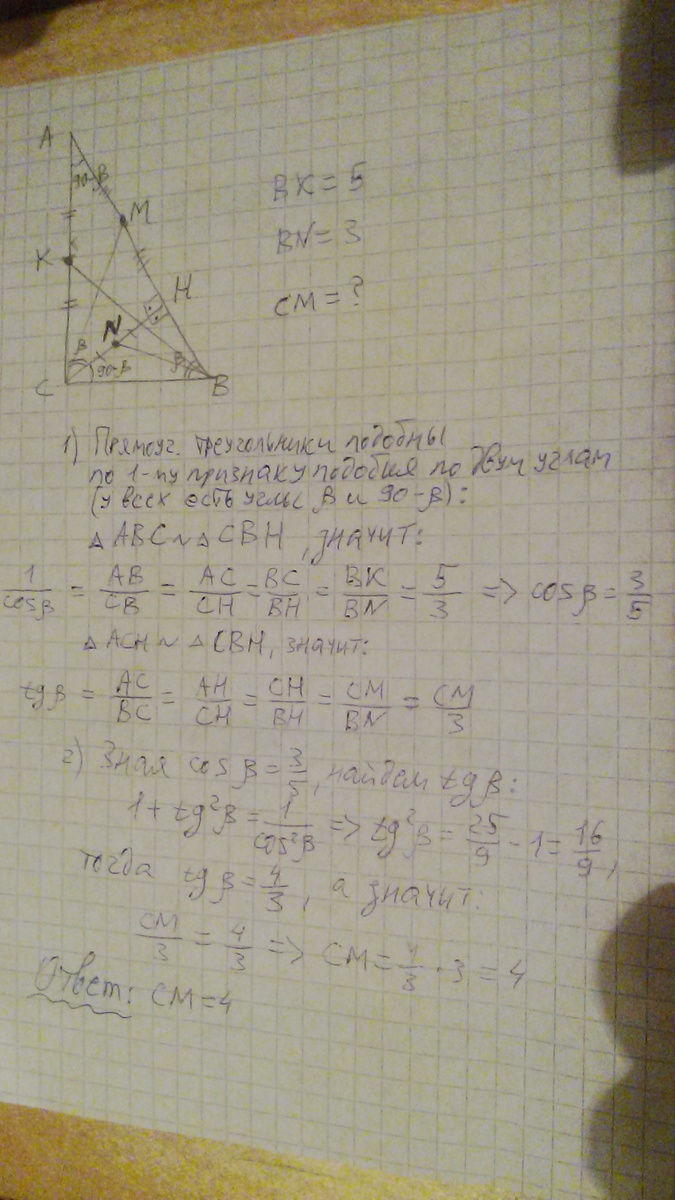 A
90-β
M
BK = 5
K
H
BN = 3
N
CM = ?
β
90-β
β
C
B
1) Прямоуг. треугольники подобны
по 1-му признаку подобия по двум углам
(у всех есть углы β и 90-β):
△ABC ~ △CBH, значит:
1/cosβ = AB/CB = AC/CH = BC/BH = BK/BN = 5/3 => cosβ = 3/5
△ACH ~ △CBH, значит:
tgβ = AC/BC = AH/CH = CH/BH = CM/BN = CM/3
2) Зная cosβ = 3/5, найдем tgβ:
1 + tg²β = 1/cos²β => tg²β = 25/9 - 1 = 16/9,
тогда tgβ = 4/3, а значит:
CM/3 = 4/3 => CM = 4/3 · 3 = 4
Ответ: CM = 4